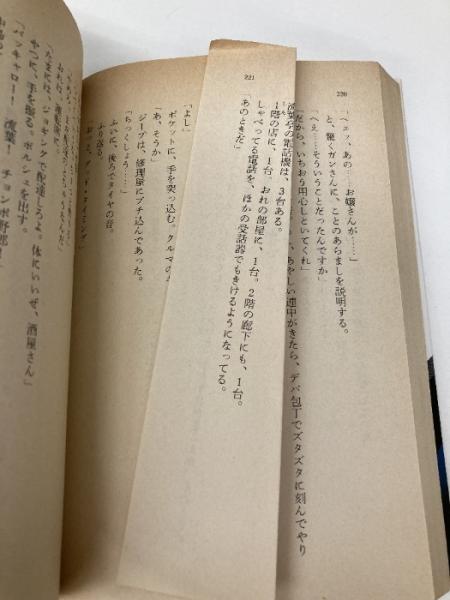 220
「ヘェッ、あの……お嬢さんが……」
と、驚くガンさんに、ことのあらましを説明する。
「へえ……そういうことだったんですか」
「だから、いちおう用心しといてくれ」
あやしい連中がきたら、デバ包丁でズタズタに刻んでやり
流葉亭の電話機は、3台ある。
1階の店に、1台。おれの部屋に、1台。2階の廊下にも、1台。
しゃべってる電話を、ほかの受話器でもきけるようになってる。
「あのときだ」
221
「よし」
ポケットに、手を突っ込む。クルマの
「あ、そうか」
ジープは、修理屋にブチ込んであった。
「ちっくしょう……」
ふいに、後ろでタイヤの音。
ふり返る。
「おっと、グッド・タイミング」
おれは、運転席に
「たまには、ジョギングで配達しろよ。体にいいぜ、酒屋さん」
やつに、手を振る。ポルシェを出す。
「バッキャロー! 流葉! チョンボ野郎!